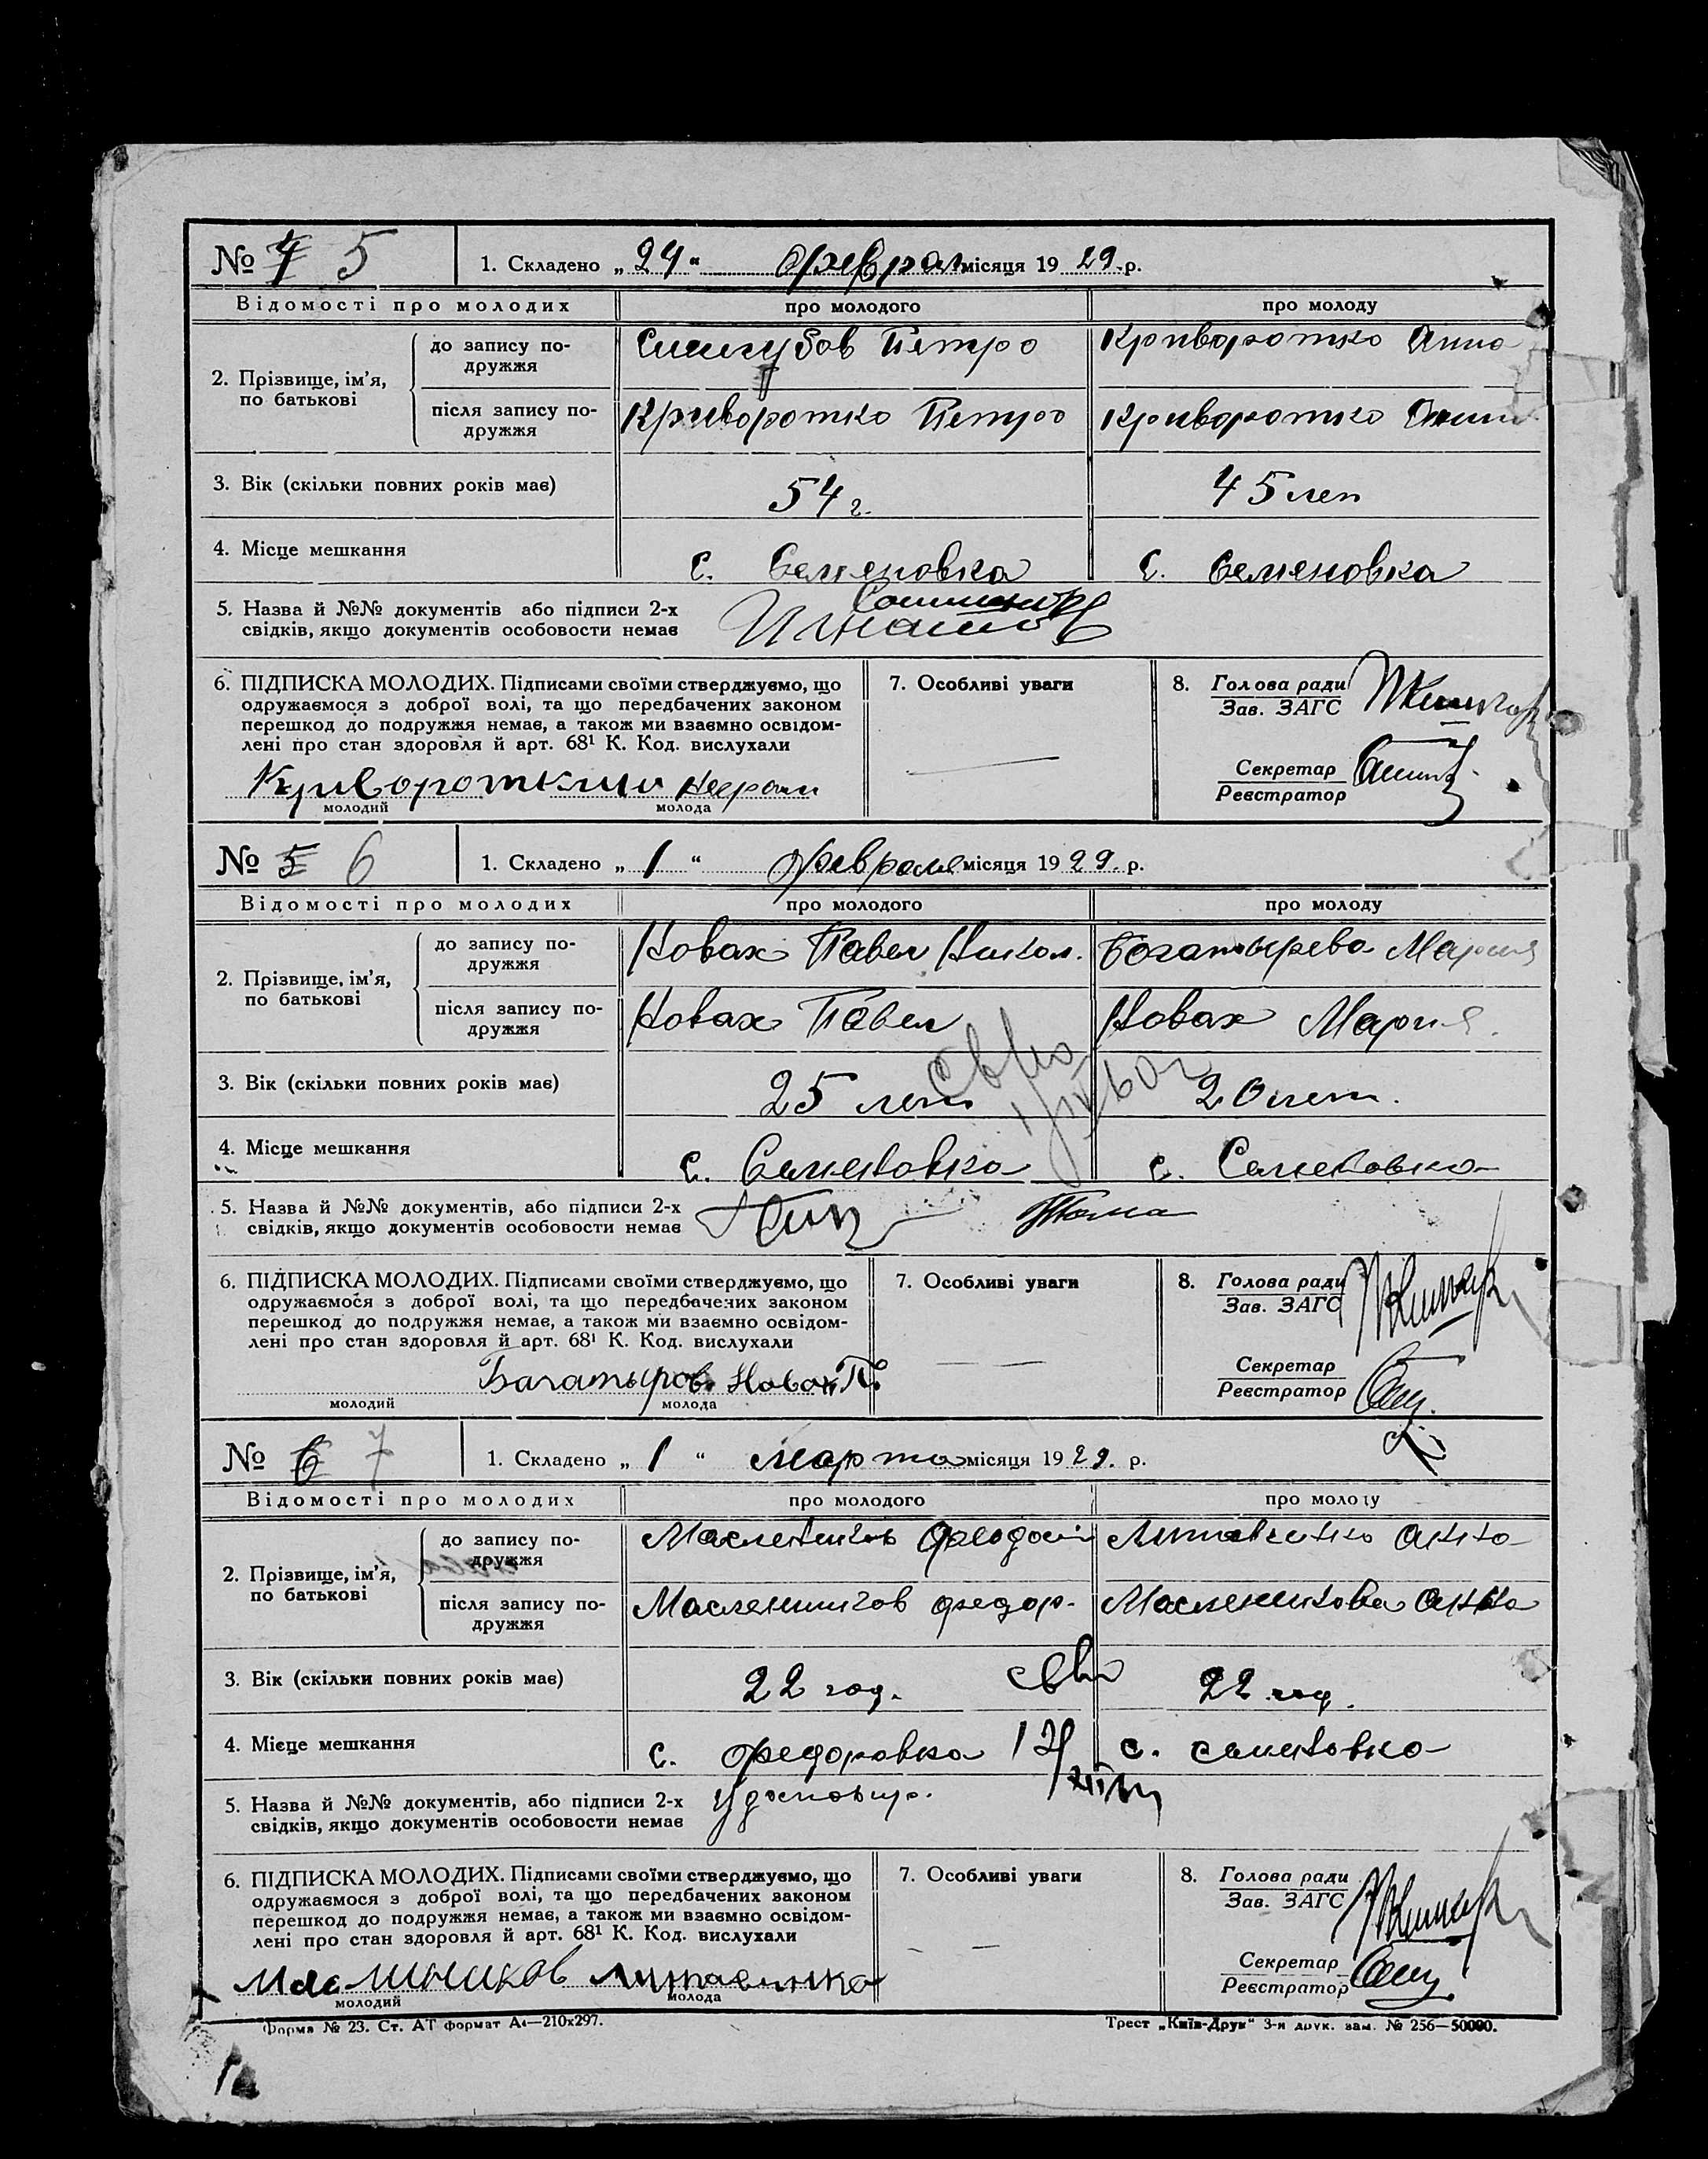 № 4 5
1. Складено „ 24 “ феврал місяця 19 29 р.
Відомості про молодих про молодого про молоду
2. Прізвище, ім’я, по батькові
до запису по-
дружжя
Петро Криворотко Анна
після запису по-
дружжя
Криворотко Петро Криворотко Анна
3. Вік (скільки повних років має) 54 г. 45 лет
4. Місце мешкання с. Семеновка с. Семеновка
5. Назва й №№ документів або підписи 2-х
свідків, якщо документів особовости немає
6. ПІДПИСКА МОЛОДИХ. Підписами своїми стверджуємо, що
одружаємося з доброї волі, та що передбачених законом
перешкод до подружжя немає, а також ми взаємно освідом-
лені про стан здоровля й арт. 68¹ К. Код. вислухали
молодий молода
7. Особливі уваги
8. Голова ради
Зав. ЗАГС
Секретар
Реєстратор
№ 5 6
1. Складено „ 1 “ февраля місяця 19 29. р.
Відомості про молодих про молодого про молоду
2. Прізвище, ім’я,
по батькові
до запису по-
дружжя
Новах Павел Никол. Богатырева Мария
після запису по-
дружжя
Новах Павел Новах Мария.
3. Вік (скільки повних років має) 25 лет 20 лет.
4. Місце мешкання с. Семеновка с. Семеновка
5. Назва й №№ документів, або підписи 2-х
свідків, якщо документів особовости немає
6. ПІДПИСКА МОЛОДИХ. Підписами своїми стверджуємо, що
одружаємося з доброї волі, та що передбачених законом
перешкод до подружжя немає, а також ми взаємно освідом-
лені про стан здоровля й арт. 68¹ К. Код. вислухали
Новах П.
молодий молода
7. Особливі уваги
8. Голова ради
Зав. ЗАГС
Секретар
Реєстратор
№ 6 7
1. Складено „ 1 “ марта місяця 19 29. р.
Відомості про молодих про молодого про молоду
2. Прізвище, ім’я,
по батькові
до запису по-
дружжя
Анна
після запису по-
дружжя
Масленников федор. Масленикова Анна
3. Вік (скільки повних років має) 22 год. 22 год.
4. Місце мешкання с. федоровка с. семеновка
5. Назва й №№ документів, або підписи 2-х
свідків, якщо документів особовости немає
6. ПІДПИСКА МОЛОДИХ. Підписами своїми стверджуємо, що
одружаємося з доброї волі, та що передбачених законом
перешкод до подружжя немає, а також ми взаємно освідом-
лені про стан здоровля й арт. 68¹ К. Код. вислухали
молодий молода
7. Особливі уваги
8. Голова ради
Зав. ЗАГС
Секретар
Реєстратор
Форма № 23. Ст. АТ формат А4—210x297.
Трест „Київ-Друк“ 3-я друк. зам. № 256—50000.